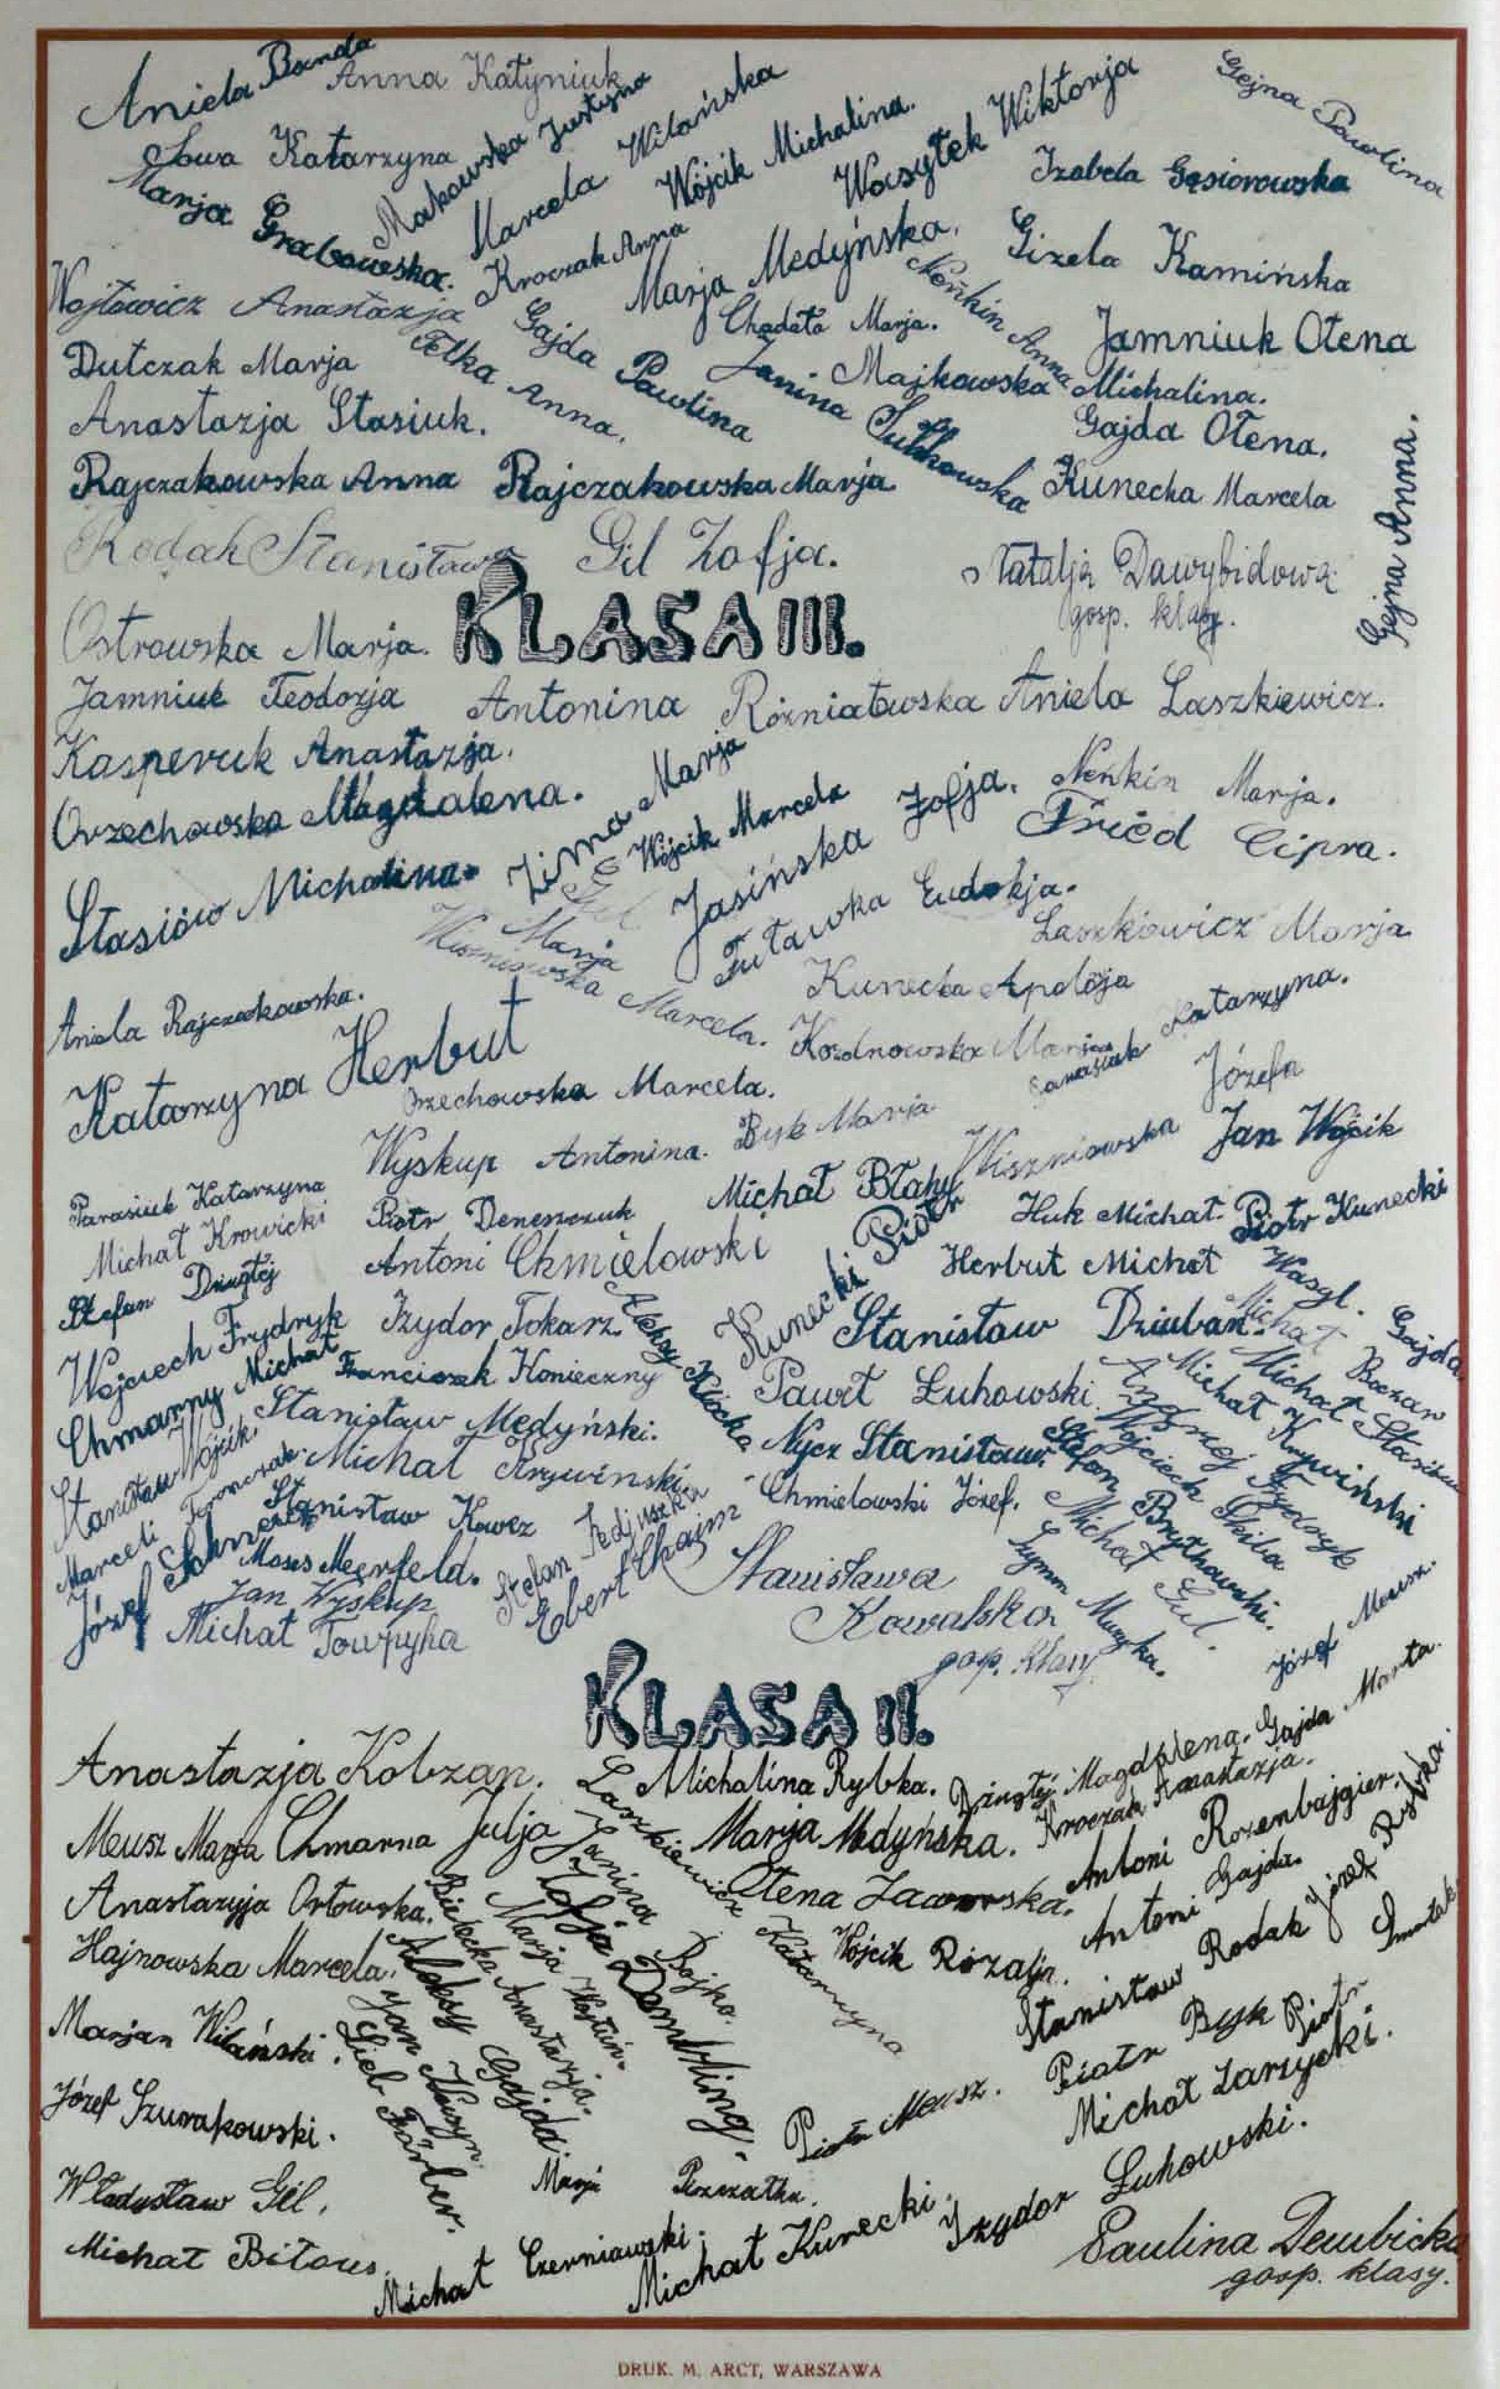 Aniela Banda
Anna Katyniuk
Sowa Katarzyna
Makowska Justyna
Marcela Wilańska
Wójcik Michalina.
Wasylek Wiktorja
Gejna Paulina
Izabela Gąsiorowska
Marja Grabowska.
Kroczak Anna
Marja Medyńska.
Gizela Kamińska
Wojtowicz Anastazja
Gajda Paulina
Chadała Marja.
Neńkin Anna
Jamniuk Ołena
Dutczak Marja
Felka Anna.
Janina Sutkowska
Majkowska Michalina.
Anastazja Stasiuk.
Gajda Ołena.
Rajczakowska Anna
Rajczakowska Marja
Kunecka Marcela
Gejna Anna.
Rodak Stanisława
Gil Zofja.
Natalja Dawybidowa
gosp. klasy.
KLASA III.
Ostrowska Marja.
Jamniuk Teodozja
Antonina Rożniatowska
Aniela Laszkiewicz.
Kasperuk Anastazja.
Orzechowska Magdalena.
Zima Marja
Wójcik Marcela
Jasińska Zofja.
Neńkin Marja.
Fried Cipra.
Stasiów Michalina.
Gul Marja
Tuławka Eudokja.
Laszkiewicz Marja
Wiszniowska Marcela.
Kunecka Apolója
Aniela Rajczakowska.
Katarzyna Herbut
Orzechowska Marcela.
Marja
Katarzyna.
Józefa
Wyskup Antonina.
Byk Marja
Wiszniowska
Jan Wójcik
Parasiuk Katarzyna
Michał Krowicki
Piotr Deneszczuk
Michał Błahy
Huk Michał.
Piotr Kunecki
Stefan Dziągłej
Antoni Chmielowski
Kunecki Piotr
Herbut Michał
Wasyl. Gajda
Wojciech Frydryk
Izydor Tokarz
Aleksy Klocka
Stanisław Dziuban.
Michał Boczar
Chmarny Michał
Franciszek Konieczny
Paweł Łuhowski
Michał Stasiów
Michał Krywiński
Stanisław Wójcik.
Stanisław Medyński.
Nycz Stanisław.
Andrzej Frydryk
Wojciech Skiba
Marceli
Michał Krywinski.
Chmielowski Józef.
Stefan Brytkowski.
Michał Gul.
Józef
Stanisław Kawcz
Stefan Fedjuszka
Szymon Muzyka.
Moses Meerfeld.
Ebert Chaim
Jan Wyskup
Michał Towpyha
Stanisława
Kowalska
gosp. klasy
Józef Meusz.
KLASA II.
Anastazja Kobzan.
Michalina Rybka.
Dziągłej Magdalena.
Gajda Marta.
Laszkiewicz Katarzyna
Kroczak Anastazja.
Meusz Marja
Chmarna Julja
Janina Bojko.
Marja Medyńska.
Antoni Rozenbajgier.
Anastazyja Orłowska.
Zofja Dembling.
Ołena Jaworska.
Antoni Gajda.
Józef Rybka.
Bielecka Anastazja.
Marja
Hajnowska Marcela.
Aleksy Gajda.
Wójcik Rozalja.
Stanisław Rodak
Marjan Wilański.
Jan
Lieb Färber.
Piotr Byk
Piotr
Józef Szurakowski.
Piotr Meusz.
Michał Zarzycki.
Władysław Gil.
Marja
Izydor Łuhowski.
Michał Bitous
Michał Czerniawski.
Michał Kunecki.
Paulina Dembicka
gosp. klasy.
DRUK. M. ARCT, WARSZAWA